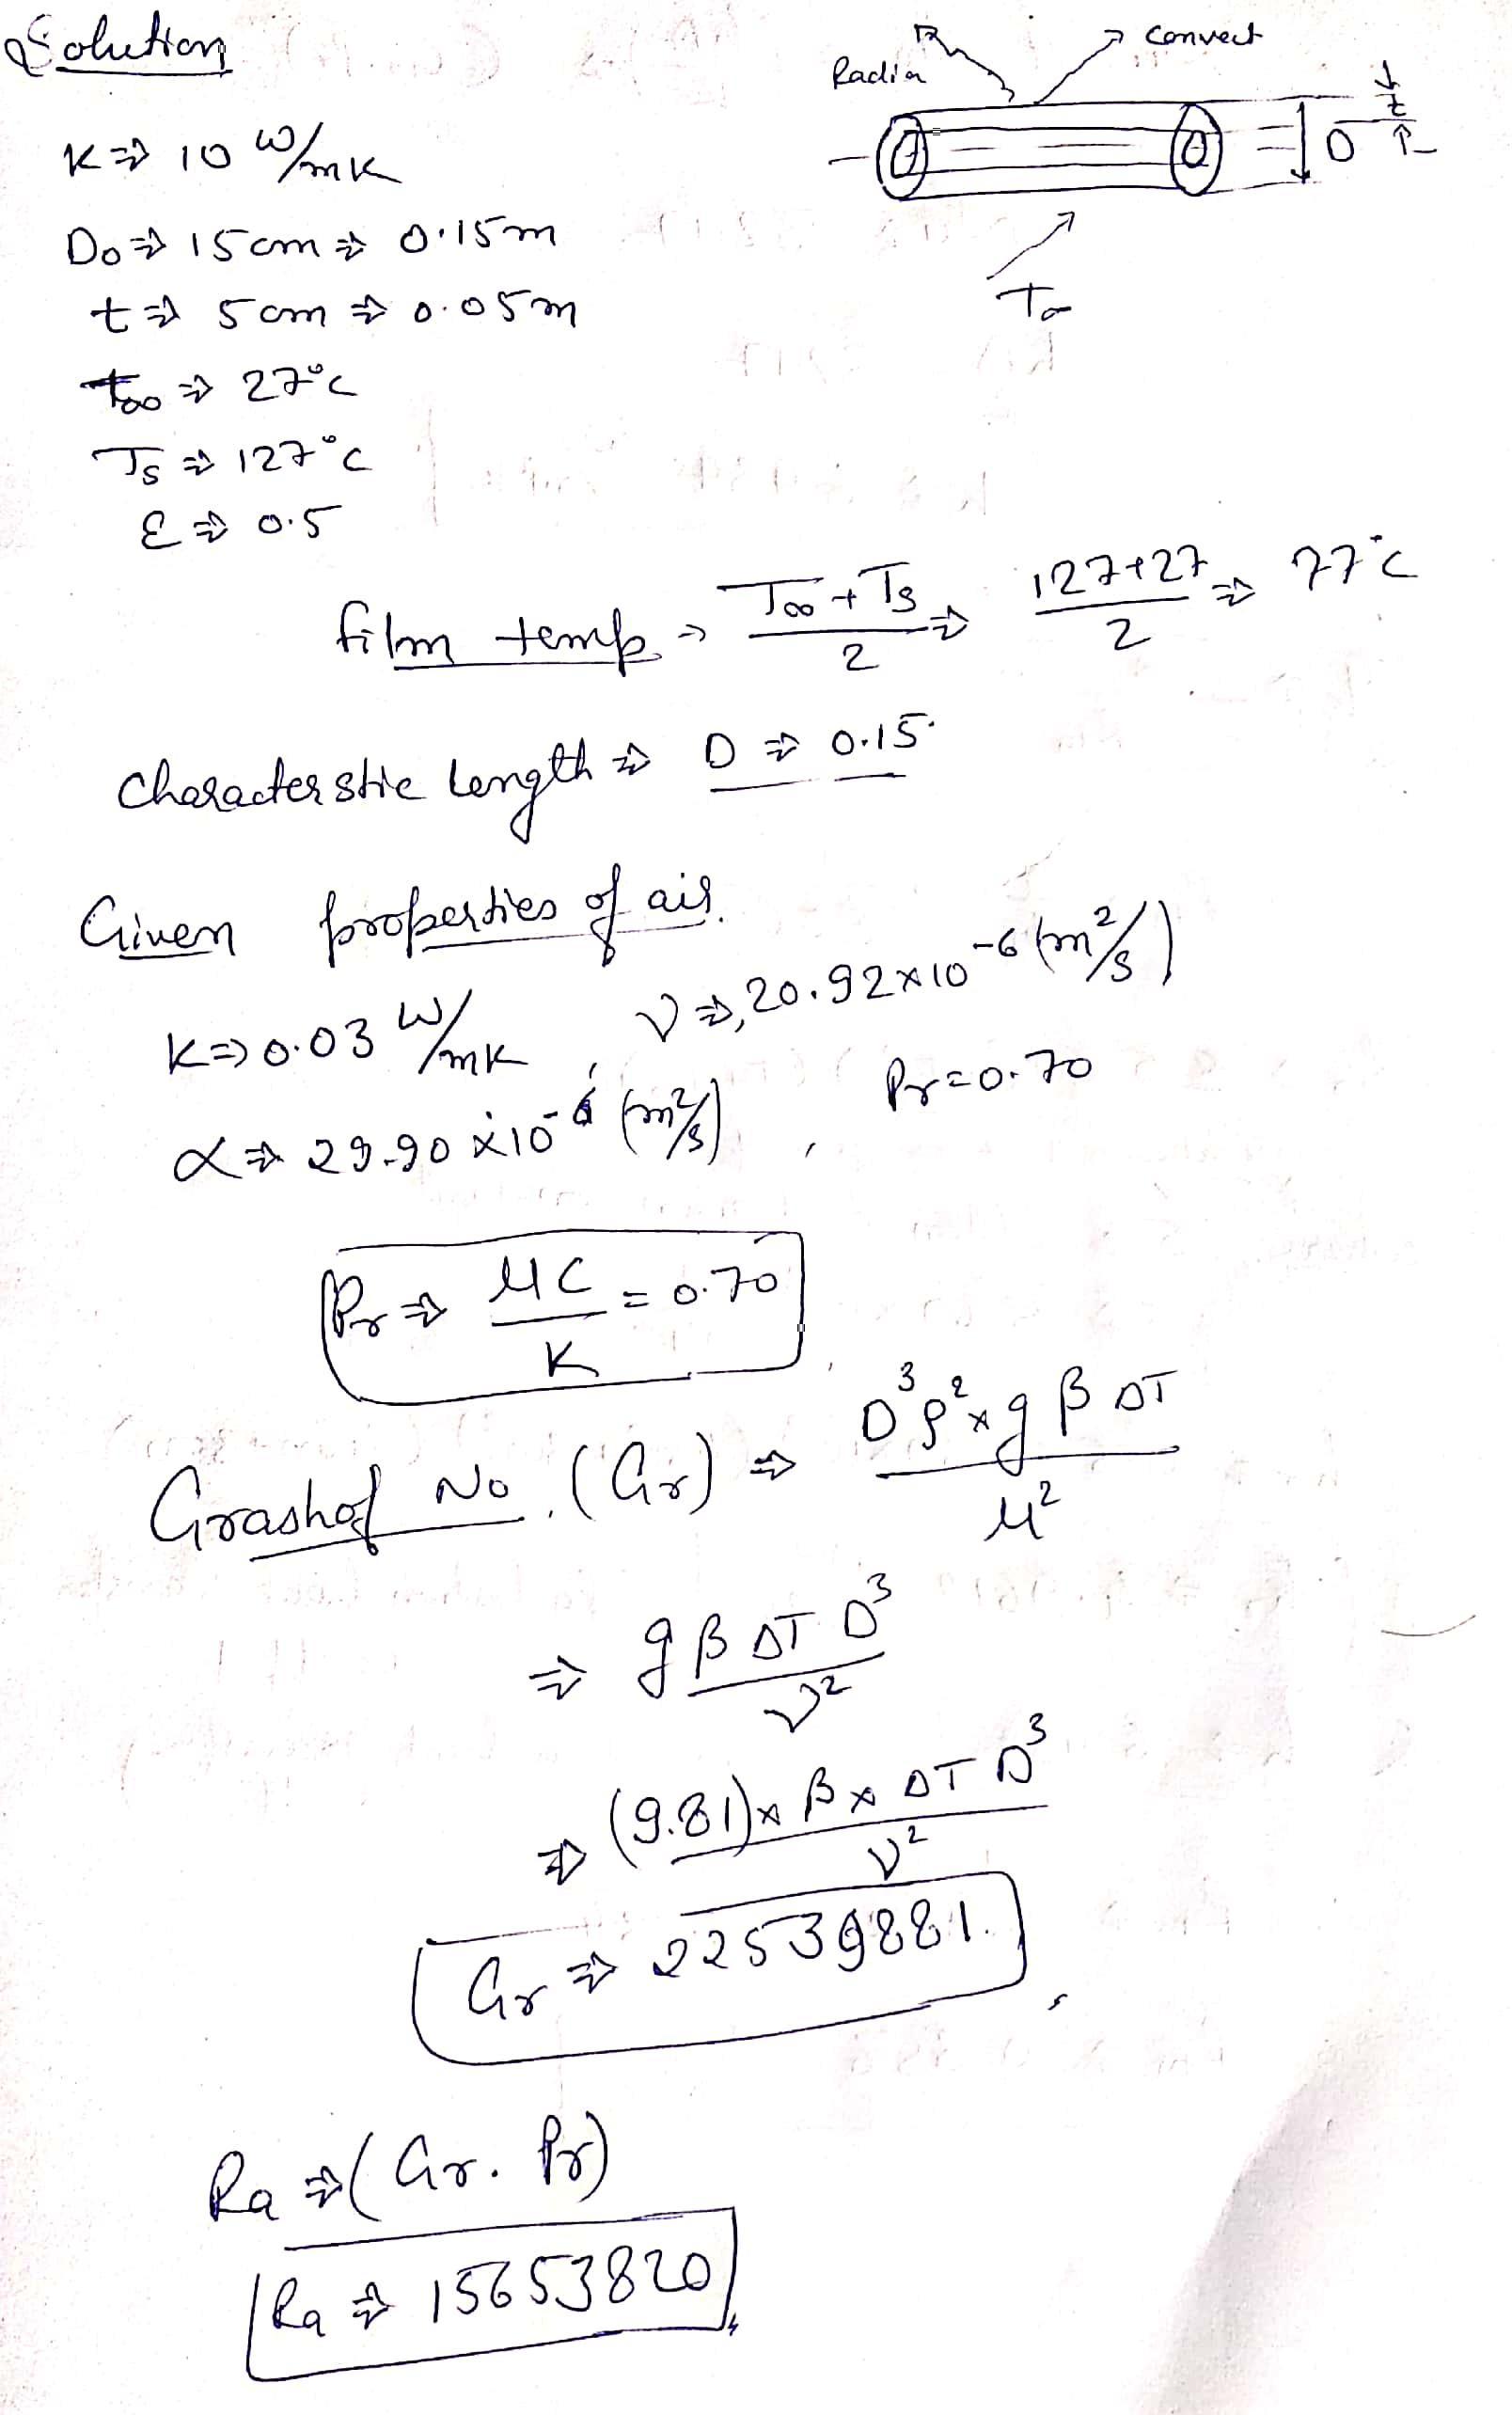 Solution
Radia
convect
t
D
K ⇒ 10 W/mK
Do ⇒ 15cm ⇒ 0.15m
t ⇒ 5cm ⇒ 0.05m
T∞ ⇒ 27°C
Ts ⇒ 127°C
ε ⇒ 0.5
film temp → (T∞ + Ts)/2 ⇒ (127+27)/2 ⇒ 77°C
Characterstic length ⇒ D ⇒ 0.15
Given properties of air.
K ⇒ 0.03 W/mK , ν ⇒ 20.92×10⁻⁶ (m²/s)
α ⇒ 29.90 ×10⁻⁶ (m²/s) , Pr = 0.70
Pr ⇒ μC/K = 0.70
Grashof No. (Gr) ⇒ D³ρ²×g β ΔT / μ²
⇒ g β ΔT D³ / ν²
⇒ (9.81)× β × ΔT D³ / ν²
Gr ⇒ 22539881.
Ra ⇒ (Gr. Pr)
Ra ⇒ 15653820